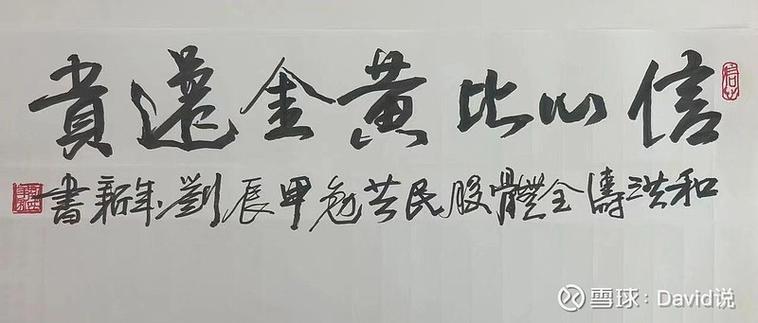 信心比黄金還貴
和洪濤全體股民共勉甲辰劉年新書
雪球：David说